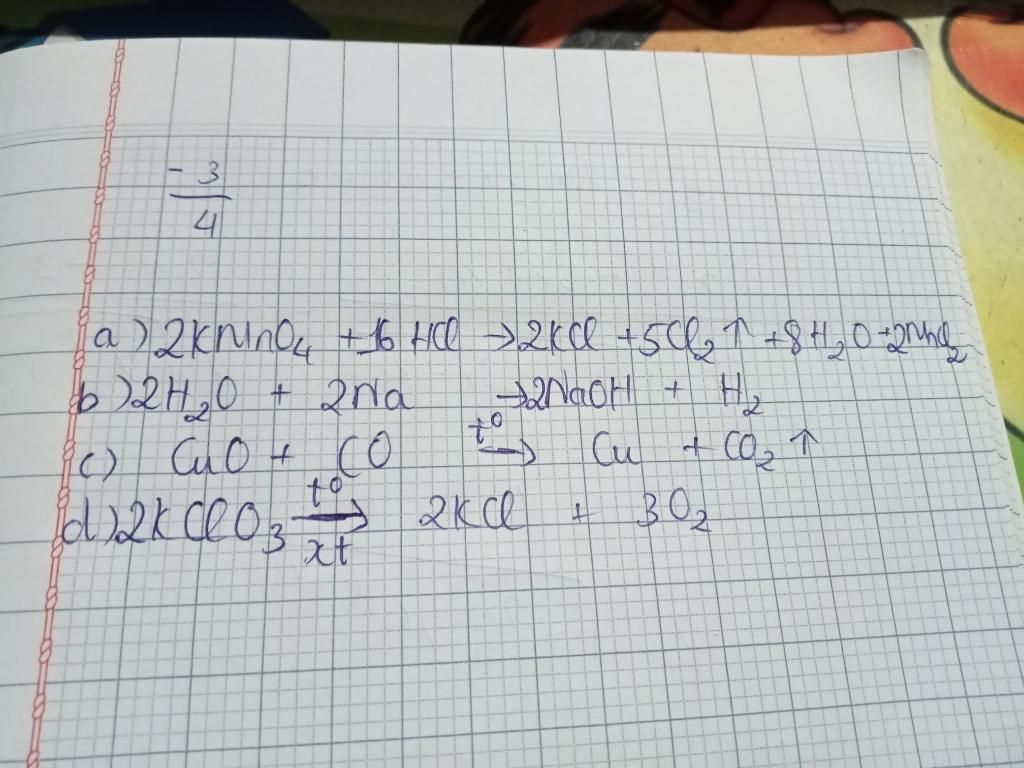 -3
4
a) 2KMnO₄ + 16 HCl → 2KCl + 5Cl₂ ↑ + 8H₂O + 2MnCl₂
b) 2H₂O + 2Na → 2NaOH + H₂
c) CuO + CO t⁰→ Cu + CO₂ ↑
d) 2KClO₃ t⁰→xt 2KCl + 3O₂